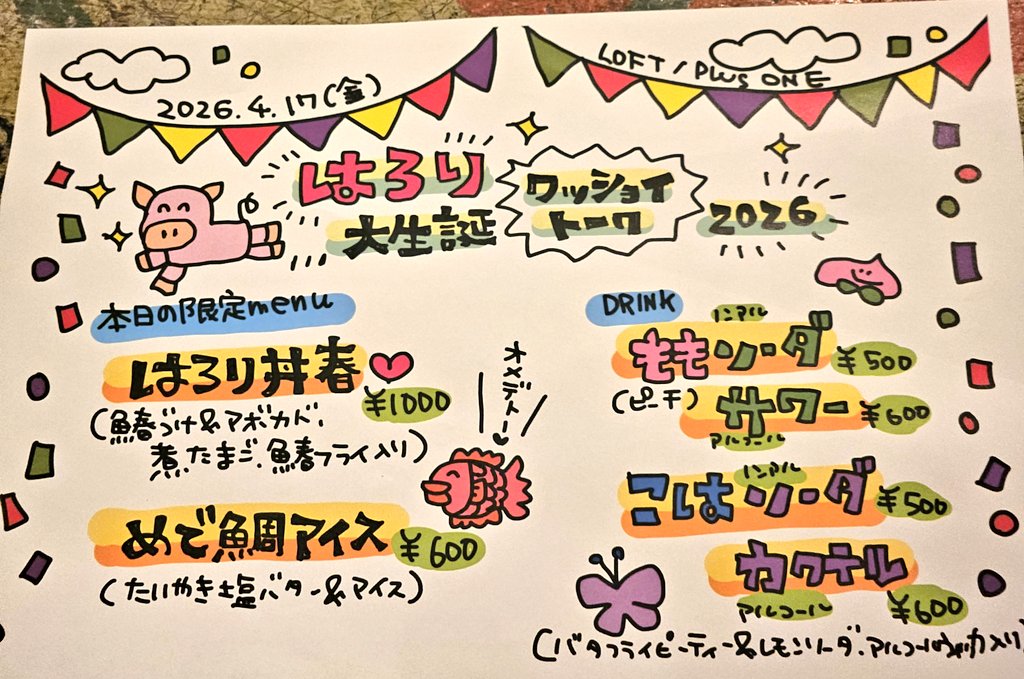 2026.4.17(金)
LOFT/PLUS ONE
はろり
大生誕
ワッショイ
トーク
2026
本日の限定menu
はろり丼春
¥1000
(鰆づけ&アボカド、
煮たまご、鰆フライ入り)
オメデトー
めで鯛アイス
¥600
(たいやき塩バター&アイス)
DRINK
ノンアル
ももソーダ
¥500
(ピーチ)
サワー
¥600
アルコール
ノンアル
こはソーダ
¥500
カクテル
アルコール
¥600
(バタフライピーティー&レモンソーダ、アルコールはウォッカ入り)